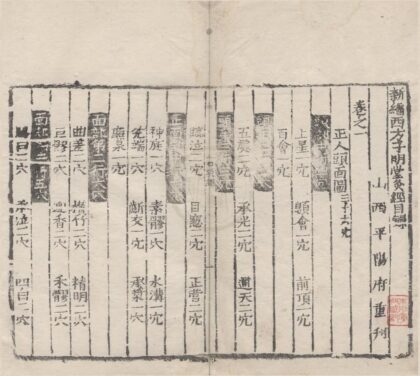 新編西方子明堂灸經目錄
山西平陽府重刊
卷之一
正人頭面圖三十六穴
上星一穴 顖會一穴 前頂一穴
百會一穴
五處二穴 承光二穴 通天二穴
臨泣二穴 目窓二穴 正營二穴
神庭一穴 素髎一穴 水溝一穴
兊端一穴 齗交一穴 承漿一穴
廉泉一穴
面部第二行六穴
曲差二穴 攢竹二穴 精明二穴
巨髎二穴 迎香二穴 禾髎二穴
面部
白二穴 承泣二穴 四白二穴